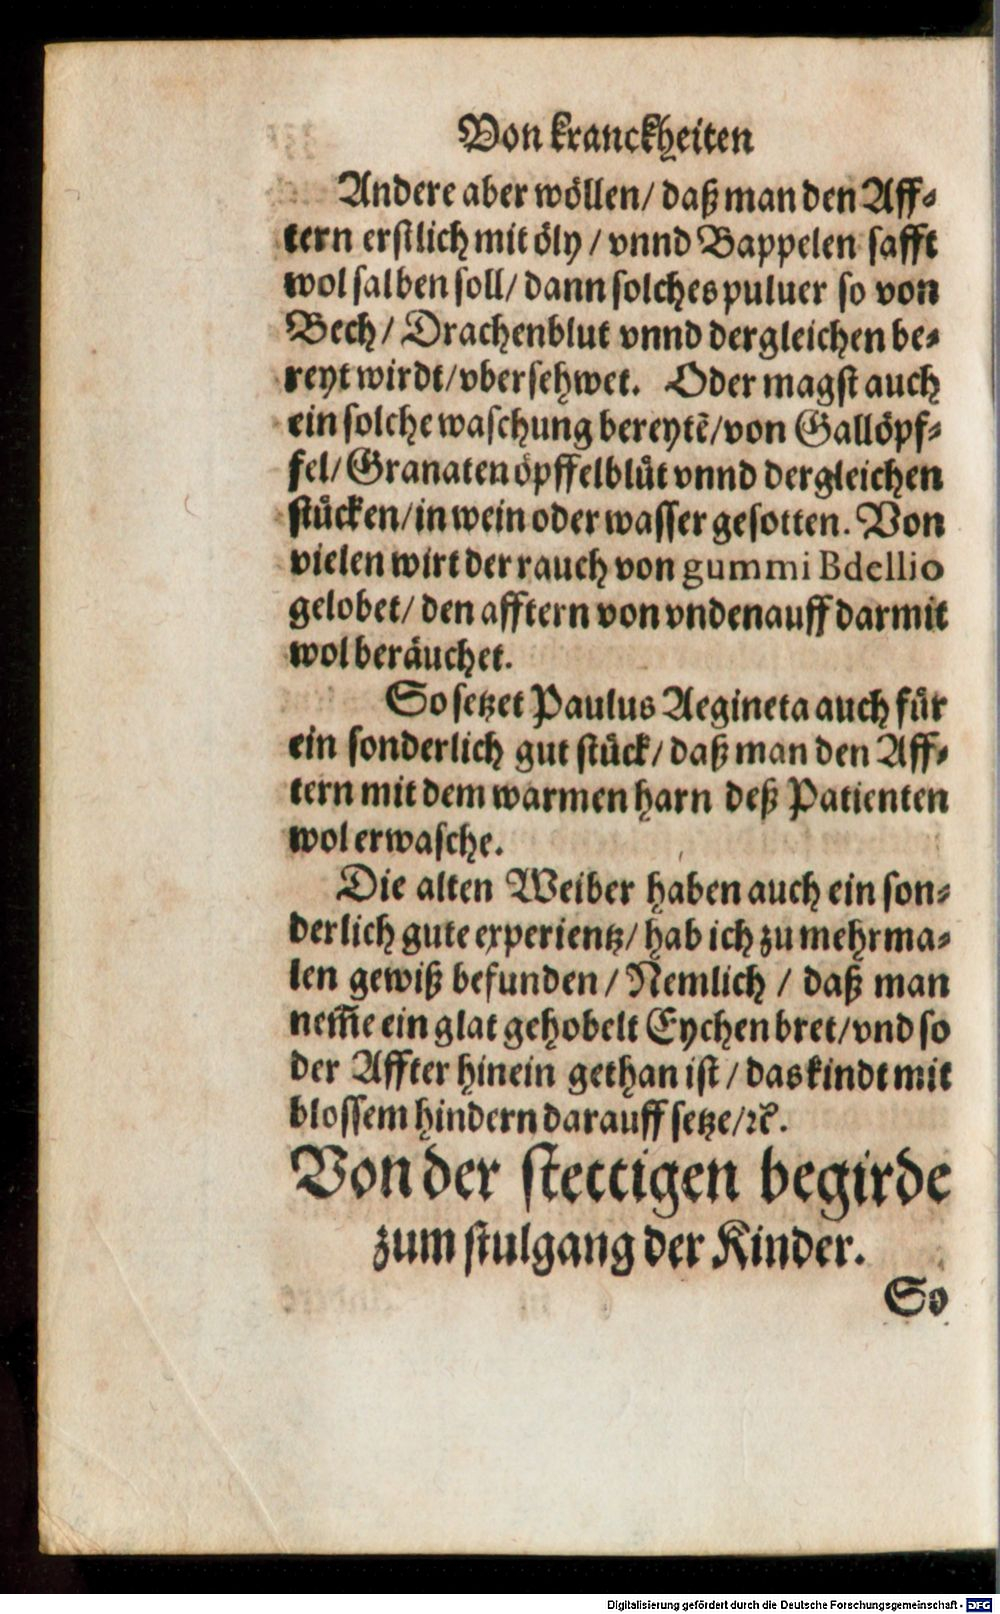 Von kranckheiten
Andere aber wöllen/ daß man den Aff-
tern erstlich mit öly / vnnd Bappelen safft
wol salben soll/ dann solches puluer so von
Bech/ Drachenblut vnnd dergleichen be-
reyt wirdt/ vbersehwet. Oder magst auch
ein solche waschung bereytē/ von Gallöpf-
fel/ Granaten öpffelblůt vnnd dergleichen
stücken/ in wein oder wasser gesotten. Von
vielen wirt der rauch von gummi Bdellio
gelobet/ den afftern von vndenauff darmit
wol beräuchet.
So setzet Paulus Aegineta auch für
ein sonderlich gut stück/ daß man den Aff-
tern mit dem warmen harn deß Patienten
wol erwasche.
Die alten Weiber haben auch ein son-
derlich gute experientz/ hab ich zu mehrma-
len gewiß befunden / Nemlich / daß man
nem̄e ein glat gehobelt Eychen bret/ vnd so
der Affter hinein gethan ist / das kindt mit
blossem hindern darauff setze/ ꝛc̄.
Von der stettigen begirde
zum stulgang der Kinder.
So
Digitalisierung gefördert durch die Deutsche Forschungsgemeinschaft - DFG